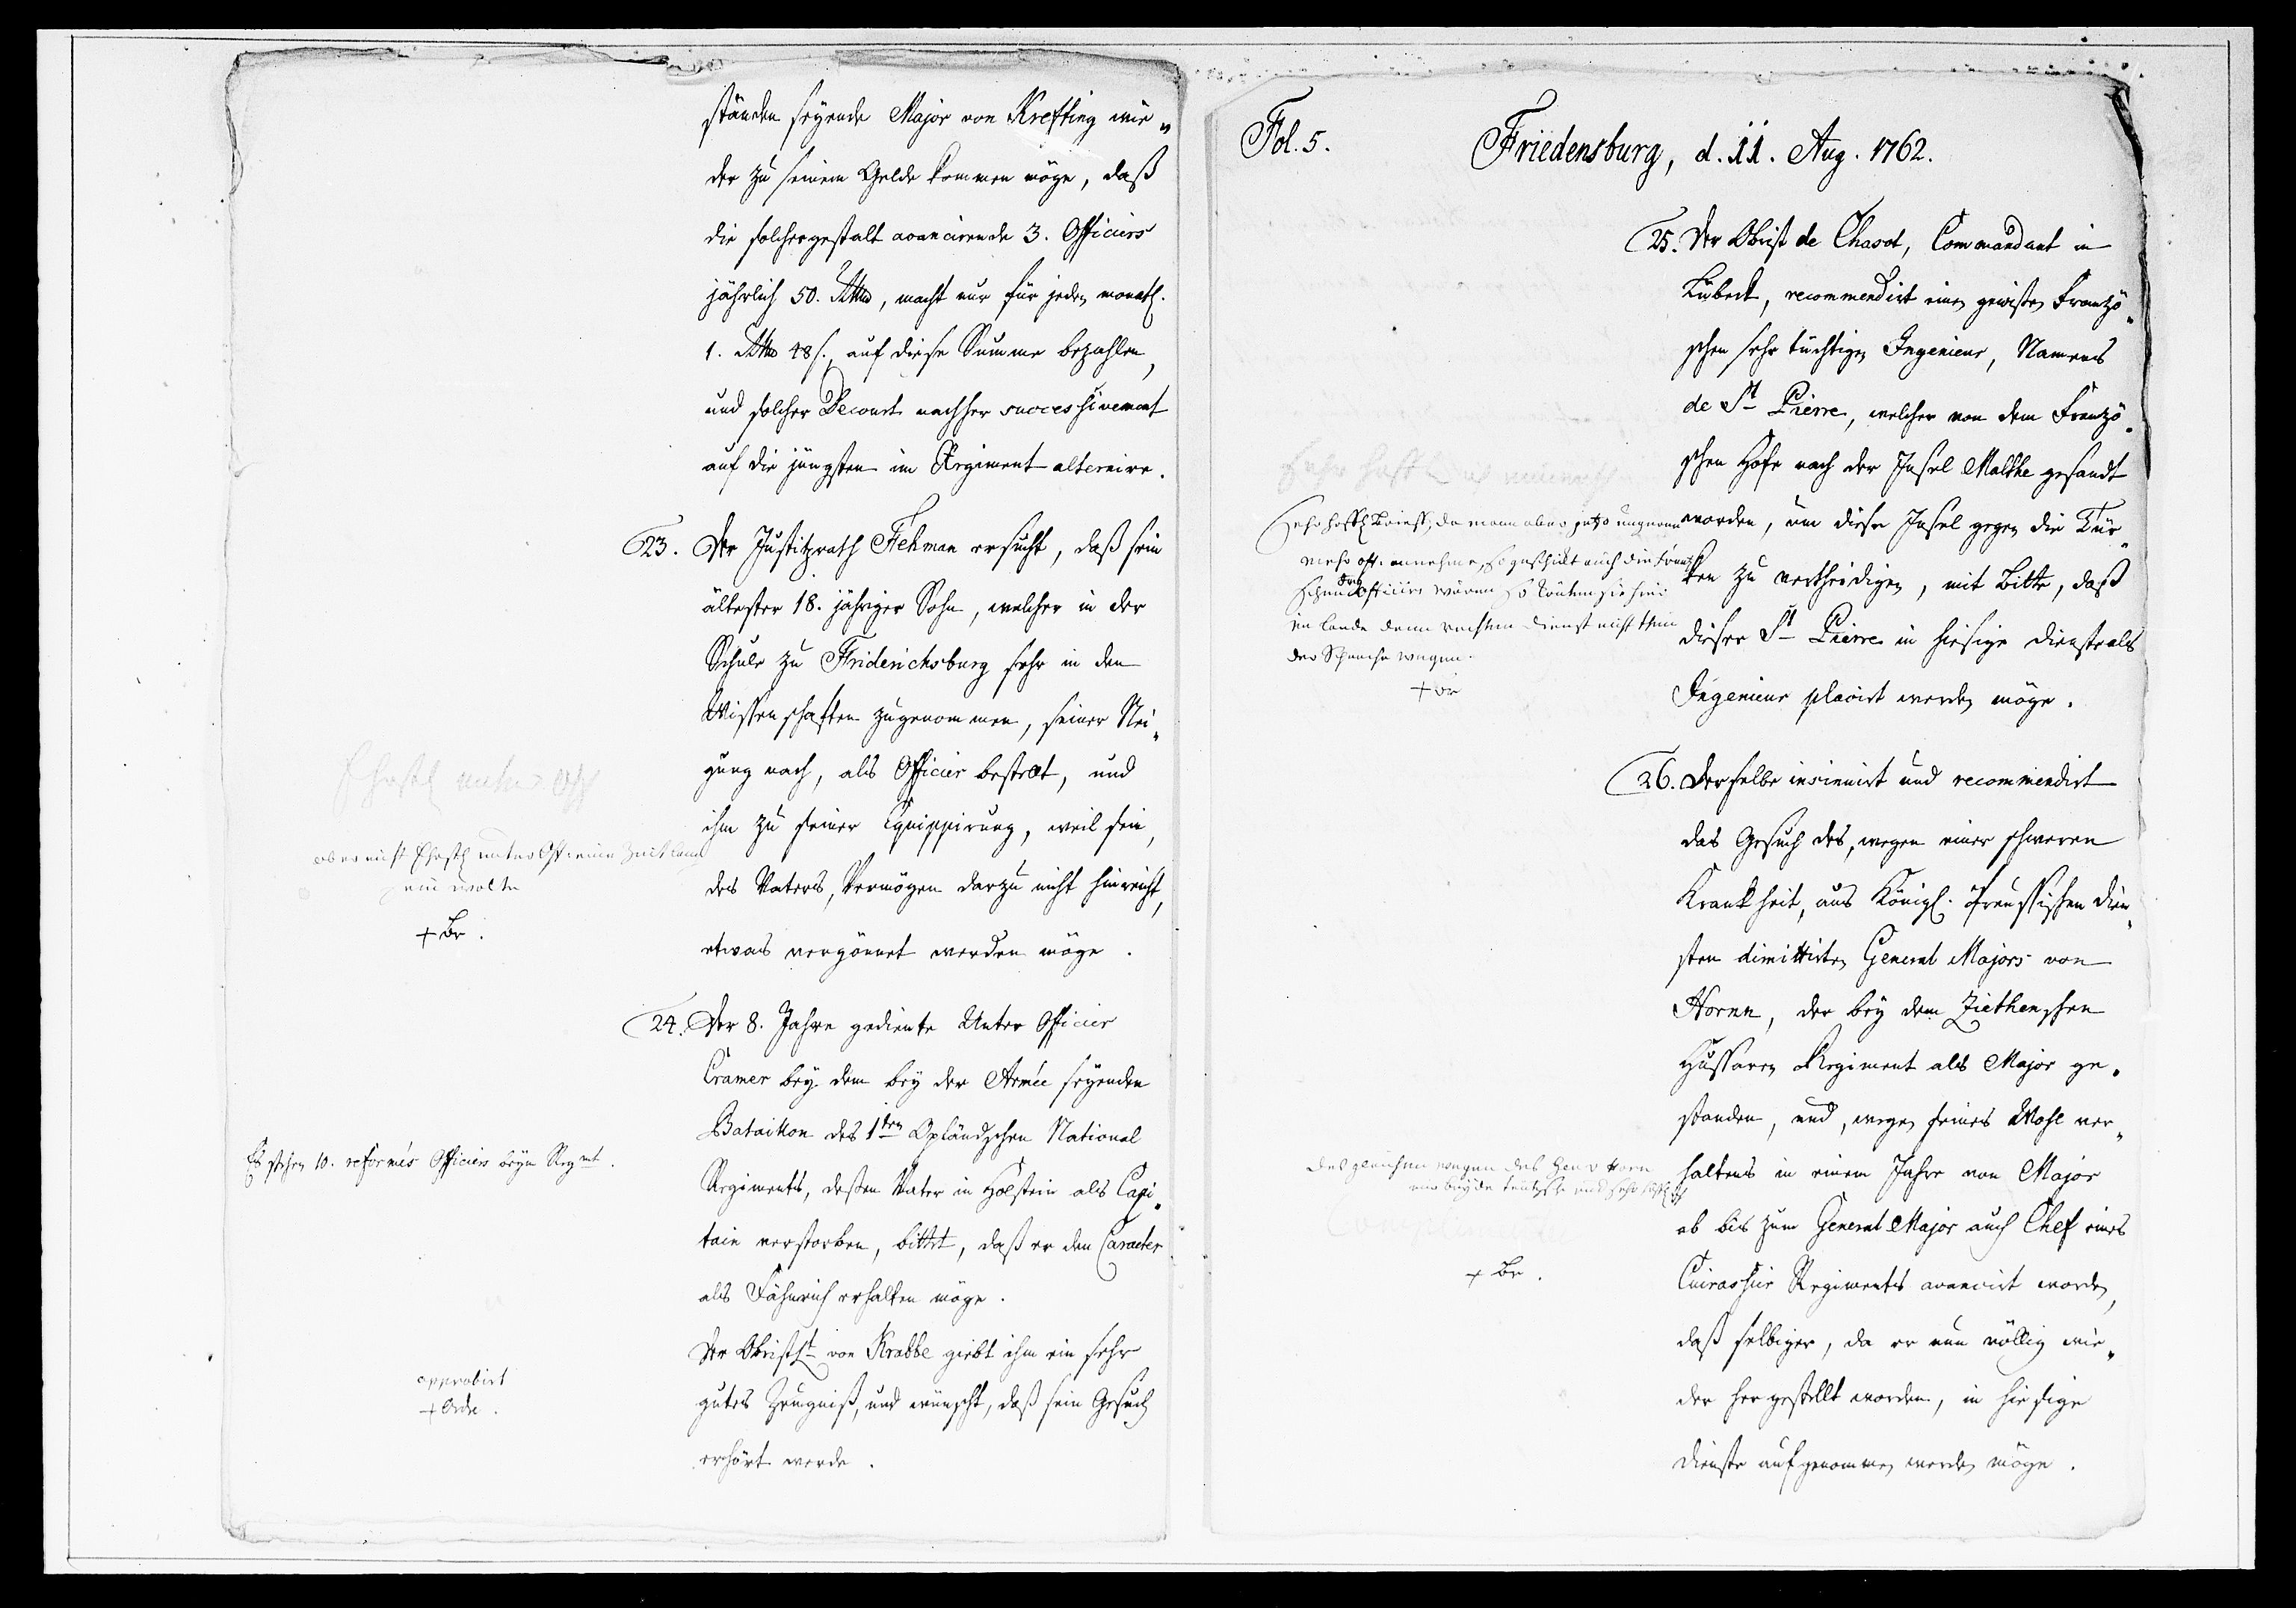 ständen seyende Major von Krefting wie„
der zu seinem Gelde kommen möge, daß
die solchergestalt avancirende 3. Officiers
jährlich 50. Rthlr, macht nur für jeden monatl.
1. Rthlr 48 ß. auf diese Summe bezahlen,
und solcher Decourt nachher successivement
auf die jüngsten im Regiment altenire.
23. Der Justitzrath Fehman ersucht, daß sein
ältester 18. jähriger Sohn, welcher in der
Schule zu Friderichsburg sehr in den
Wissenschaften zugenommen, seiner Nei„
gung nach, als Officier bestelt, und
ihm zu seiner Equippirung, weil sein,
des Vaters, Vermögen darzu nicht hinreicht,
etwas vergönnet werden möge.
ob er nicht erstl. unter Off. eine Zeit lang
sein wolte
+ Br.
24. Der 8. Jahre gediente Unter Officier
Cramer bey dem bey der Armée seyenden
Bataillon des 1ten Opländschen National
Regiments, deßen Vater in Holstein als Capi„
tain verstorben, bittet, daß er den Caracter
als Fähnrich erhalten möge.
Es stehen 10. reformés Officiers beym Regmt.
Der Obristlt von Krabbe giebt ihm ein sehr
gutes Zeugniß, und wünscht, daß sein Gesuch
erhört werde.
approbirt
+ Ordre.
Fol. 5.
Friedensburg, d. 11. Aug. 1762.
25. Der Obrist de Chasot, Commandant in
Lübeck, recommendirt einen gewißen Franzö„
schen sehr tüchtigen Ingenieur, Namens
de St Pierre, welcher von dem Franzö„
schen Hofe nach der Insel Malthe gesandt
worden, um diese Insel gegen die Tür„
ken zu vertheidigen, mit Bitte, daß
dieser St Pierre in hiesige Dienste als
Ingenieur placirt werden möge.
sehr höfl. Brieff, da mann aber jetzo ungern
mehr off. annehme, so geschickt auch die frantz
schen Officiers wären so könten sie hier
im Lande denn rechten Dienst nicht thun
der Sprache wegen.
+ Br
26. Derselbe insinuirt und recommendirt
das Gesuch des, wegen einer schweren
Krankheit, aus Königl. Preussischen Dien„
sten dimittirten General Majors von
Hornn, der bey dem Ziethenschen
Hussaren Regiment als Major ge„
standen, und, wegen seines Wohl ver„
haltens in einem Jahre von Major
ab bis zum General Major auch Chef eines
Cuirassier Regiments avancirt worden,
daß selbiger, da er nun völlig wie„
der hergestellt worden, in hiesige
Dienste aufgenommen werden möge.
desgleichen wegen des Gen v Horn
+ Br.